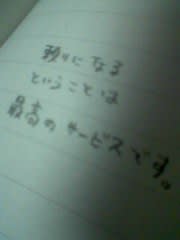 頼りになる
ということは
最高のサービスです。